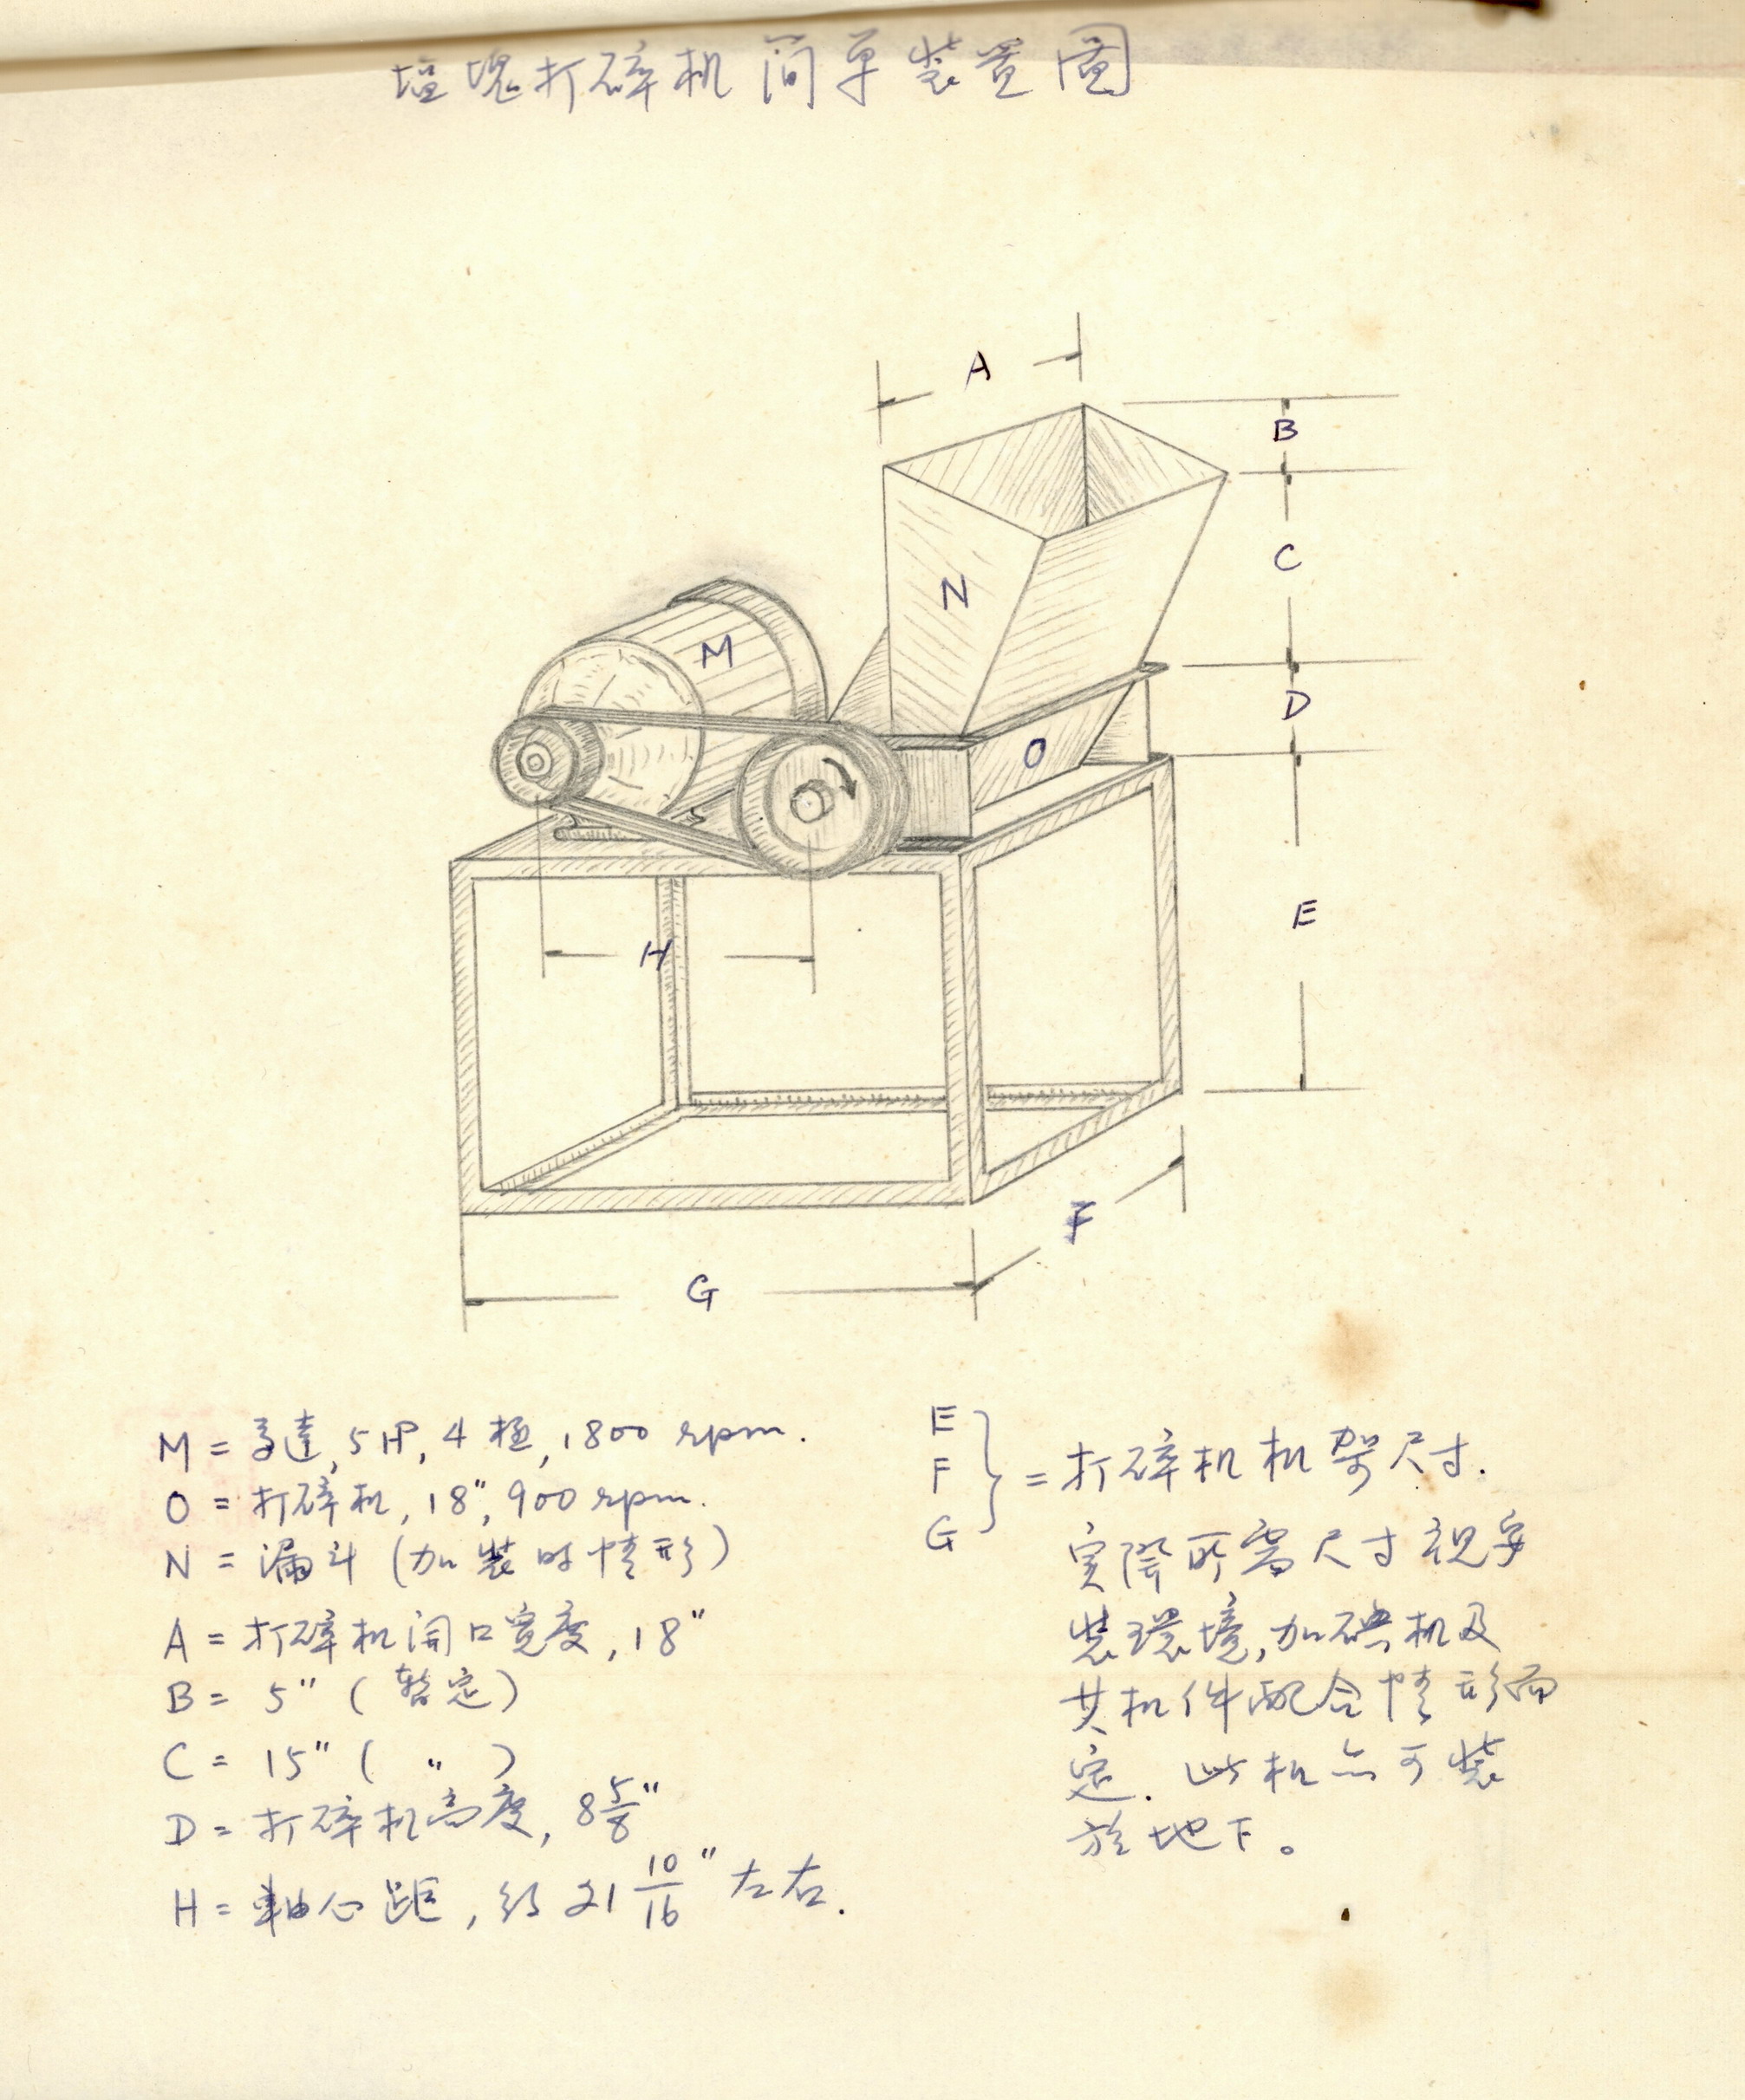 塩塊打碎机简单裝置圖
A
B
C
N
M
D
O
E
H
F
G
M = 馬達, 5 HP, 4 極, 1800 rpm.
O = 打碎机, 18", 900 rpm.
N = 漏斗 (加裝時情形)
A = 打碎机開口寬度, 18"
B = 5" (暫定)
C = 15" ( " )
D = 打碎机高度, 8 5/8"
H = 軸心距, 約 21 10/16" 左右.
E
F } = 打碎机机架尺寸.
G
实際所需尺寸視安
裝環境, 加碘机及
其机件配合情形而
定. 此机亦可裝
於地下。